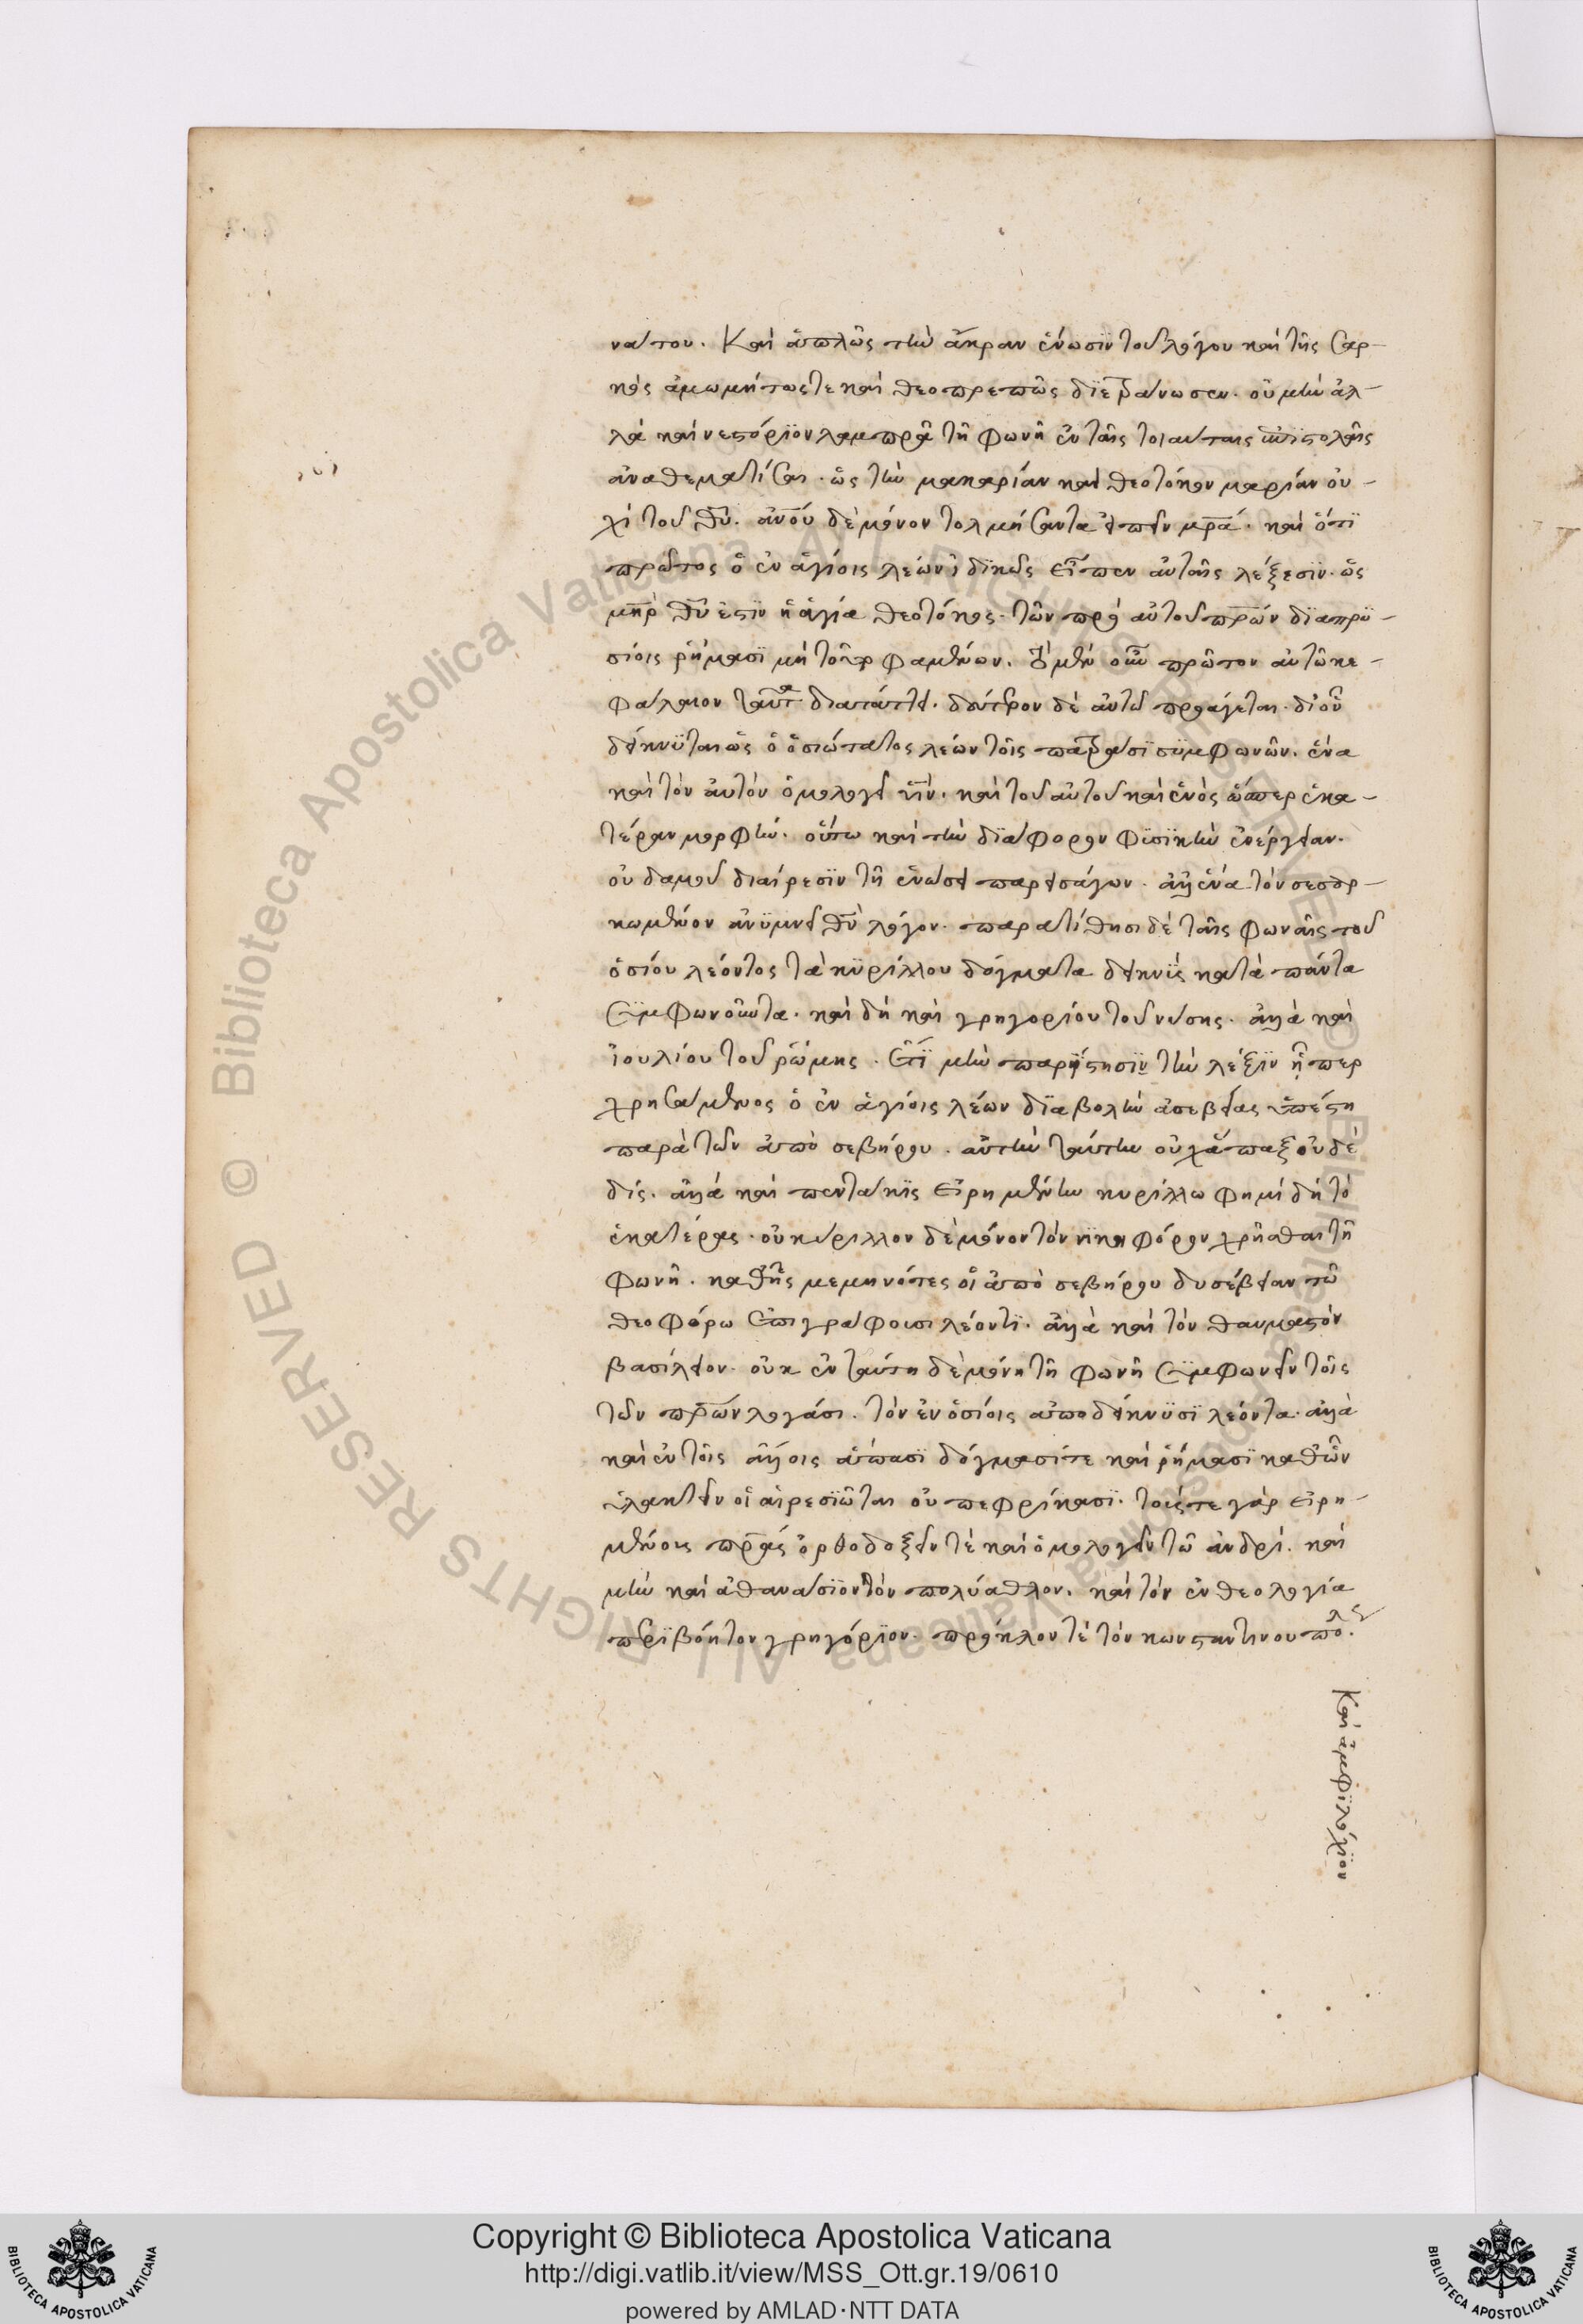 νάτου. Καὶ ἁπλῶς τὴν ἄκραν ἕνωσϊν τοῦ λόγου καὶ τῆς σαρ-
κὸς ἀμωμήτως τε καὶ θεοπρεπῶς δϊετράνωσεν. οὐ μὴν ἀλ-
λὰ καὶ νεστόρϊον λαμπρᾶ τῆ φωνῆ ἐν ταῖς τοιαύταις ἐπϊστολαῖς
ἀναθεματίσαι. ὡς τὴν μακαρίαν καὶ θεοτόκον μαρίαν οὐ-
χὶ τοῦ θυ. ανου δὲ μόνον τολμήσαντα εἰπεῖν μρα. καὶ ὅτϊ
πρῶτος ὁ ἐν ἁγίοις λέων ἰδϊκῶς εἶπεν αὐταῖς λέξεσϊν. ὡς
μηρ θυ ἐστϊν ἡ ἁγία θεοτόκος. τῶν πρὸ αὐτοῦ πρων δϊαπρυ-
σίοις ῥήμασϊ μὴ τοῦτο φαμένων. Τὸ μὲν οὖν πρῶτον αὐτῶ κε-
φάλαιον ταῦτα διαπεραίνει. δεύτερον δὲ αὐτῶ προάγεται. δι' οὗ
δείκνϋται ὡς ὁ ὁσιώτατος λέων τοῖς πατράσϊ σϋμφωνῶν. ἕνα
καὶ τὸν αὐτὸν ὁμολογεῖ υἱόν. καὶ τοῦ αὐτοῦ καὶ ἑνὸς ὥσπερ ἑκα-
τέραν μορφήν. οὕτω καὶ τὴν δϊάφορον φϋσϊκὴν ἐνέργειαν.
οὐδαμοῦ διαίρεσϊν τῆ ἑνώσει παρεισάγων. ἀλλ' ἕνα τὸν σεσαρ-
κωμένον ἀνϋμνεῖ θυ λόγον. παρατίθησι δὲ ταῖς φωναῖς τοῦ
ὁσίου λέοντος τὰ κϋρίλλου δόγματα δεικνὺς κατὰ πάντα
σϋμφωνοῦντα. καὶ δὴ καὶ γρηγορίου τοῦ νύσης. ἀλλὰ καὶ
ἰουλίου τοῦ ῥώμης. ἔτϊ μὴν παρίστησϊν τὴν λέξϊν ἧπερ
χρησάμενος ὁ ἐν ἁγίοις λέων δϊαβολὴν ἀσεβείας ὑπέστη
παρὰ τῶν ἀπὸ σεβήρου. αὐτὴν ταύτην οὐχ ἅπαξ οὐδὲ
δίς. ἀλλὰ καὶ πεντάκϊς εἰρημένην κυρίλλω φημὶ δὴ τὸ
ἑκατέρας. οὐ κύριλλον δὲ μόνον τὸν νϊκηφόρον χρῆσθαι τῆ
φωνῆ. καθ' ἧς μεμηνότες οἱ ἀπὸ σεβήρου δυσέβειαν τῶ
θεοφόρω ἐπιγράφουσι λέοντϊ. ἀλλὰ καὶ τὸν θαυμαστὸν
βασίλειον. οὐκ ἐν ταύτη δὲ μόνη τῆ φωνῆ σϋμφωνεῖν τοῖς
τῶν πρων λογάσι. τὸν ἐν ὁσίοις ἀποδείκνυσϊ λέοντα. ἀλλὰ
καὶ ἐν τοῖς ἄλλοις ἅπασϊ δόγμασί τε καὶ ῥήμασϊ καθ' ὧν
ὑλακτεῖν οἱ αἱρεσϊῶται οὐ πεφρίκασϊ. τούς τε γὰρ εἰρη-
μένους πρας ὀρθοδοξεῖν τὲ καὶ ὁμολογεῖν τῶ ἀνδρί. καὶ
μὴν καὶ ἀθανάσϊον τὸν πολύαθλον. καὶ τὸν ἐν θεολογία
περϊβόητον γρηγόρϊον. πρόκλον τὲ τὸν κωνσταντινουπόλεως.
Καὶ ἀμφϊλόχϊον
Copyright © Biblioteca Apostolica Vaticana
http://digi.vatlib.it/view/MSS_Ott.gr.19/0610
powered by AMLAD·NTT DATA